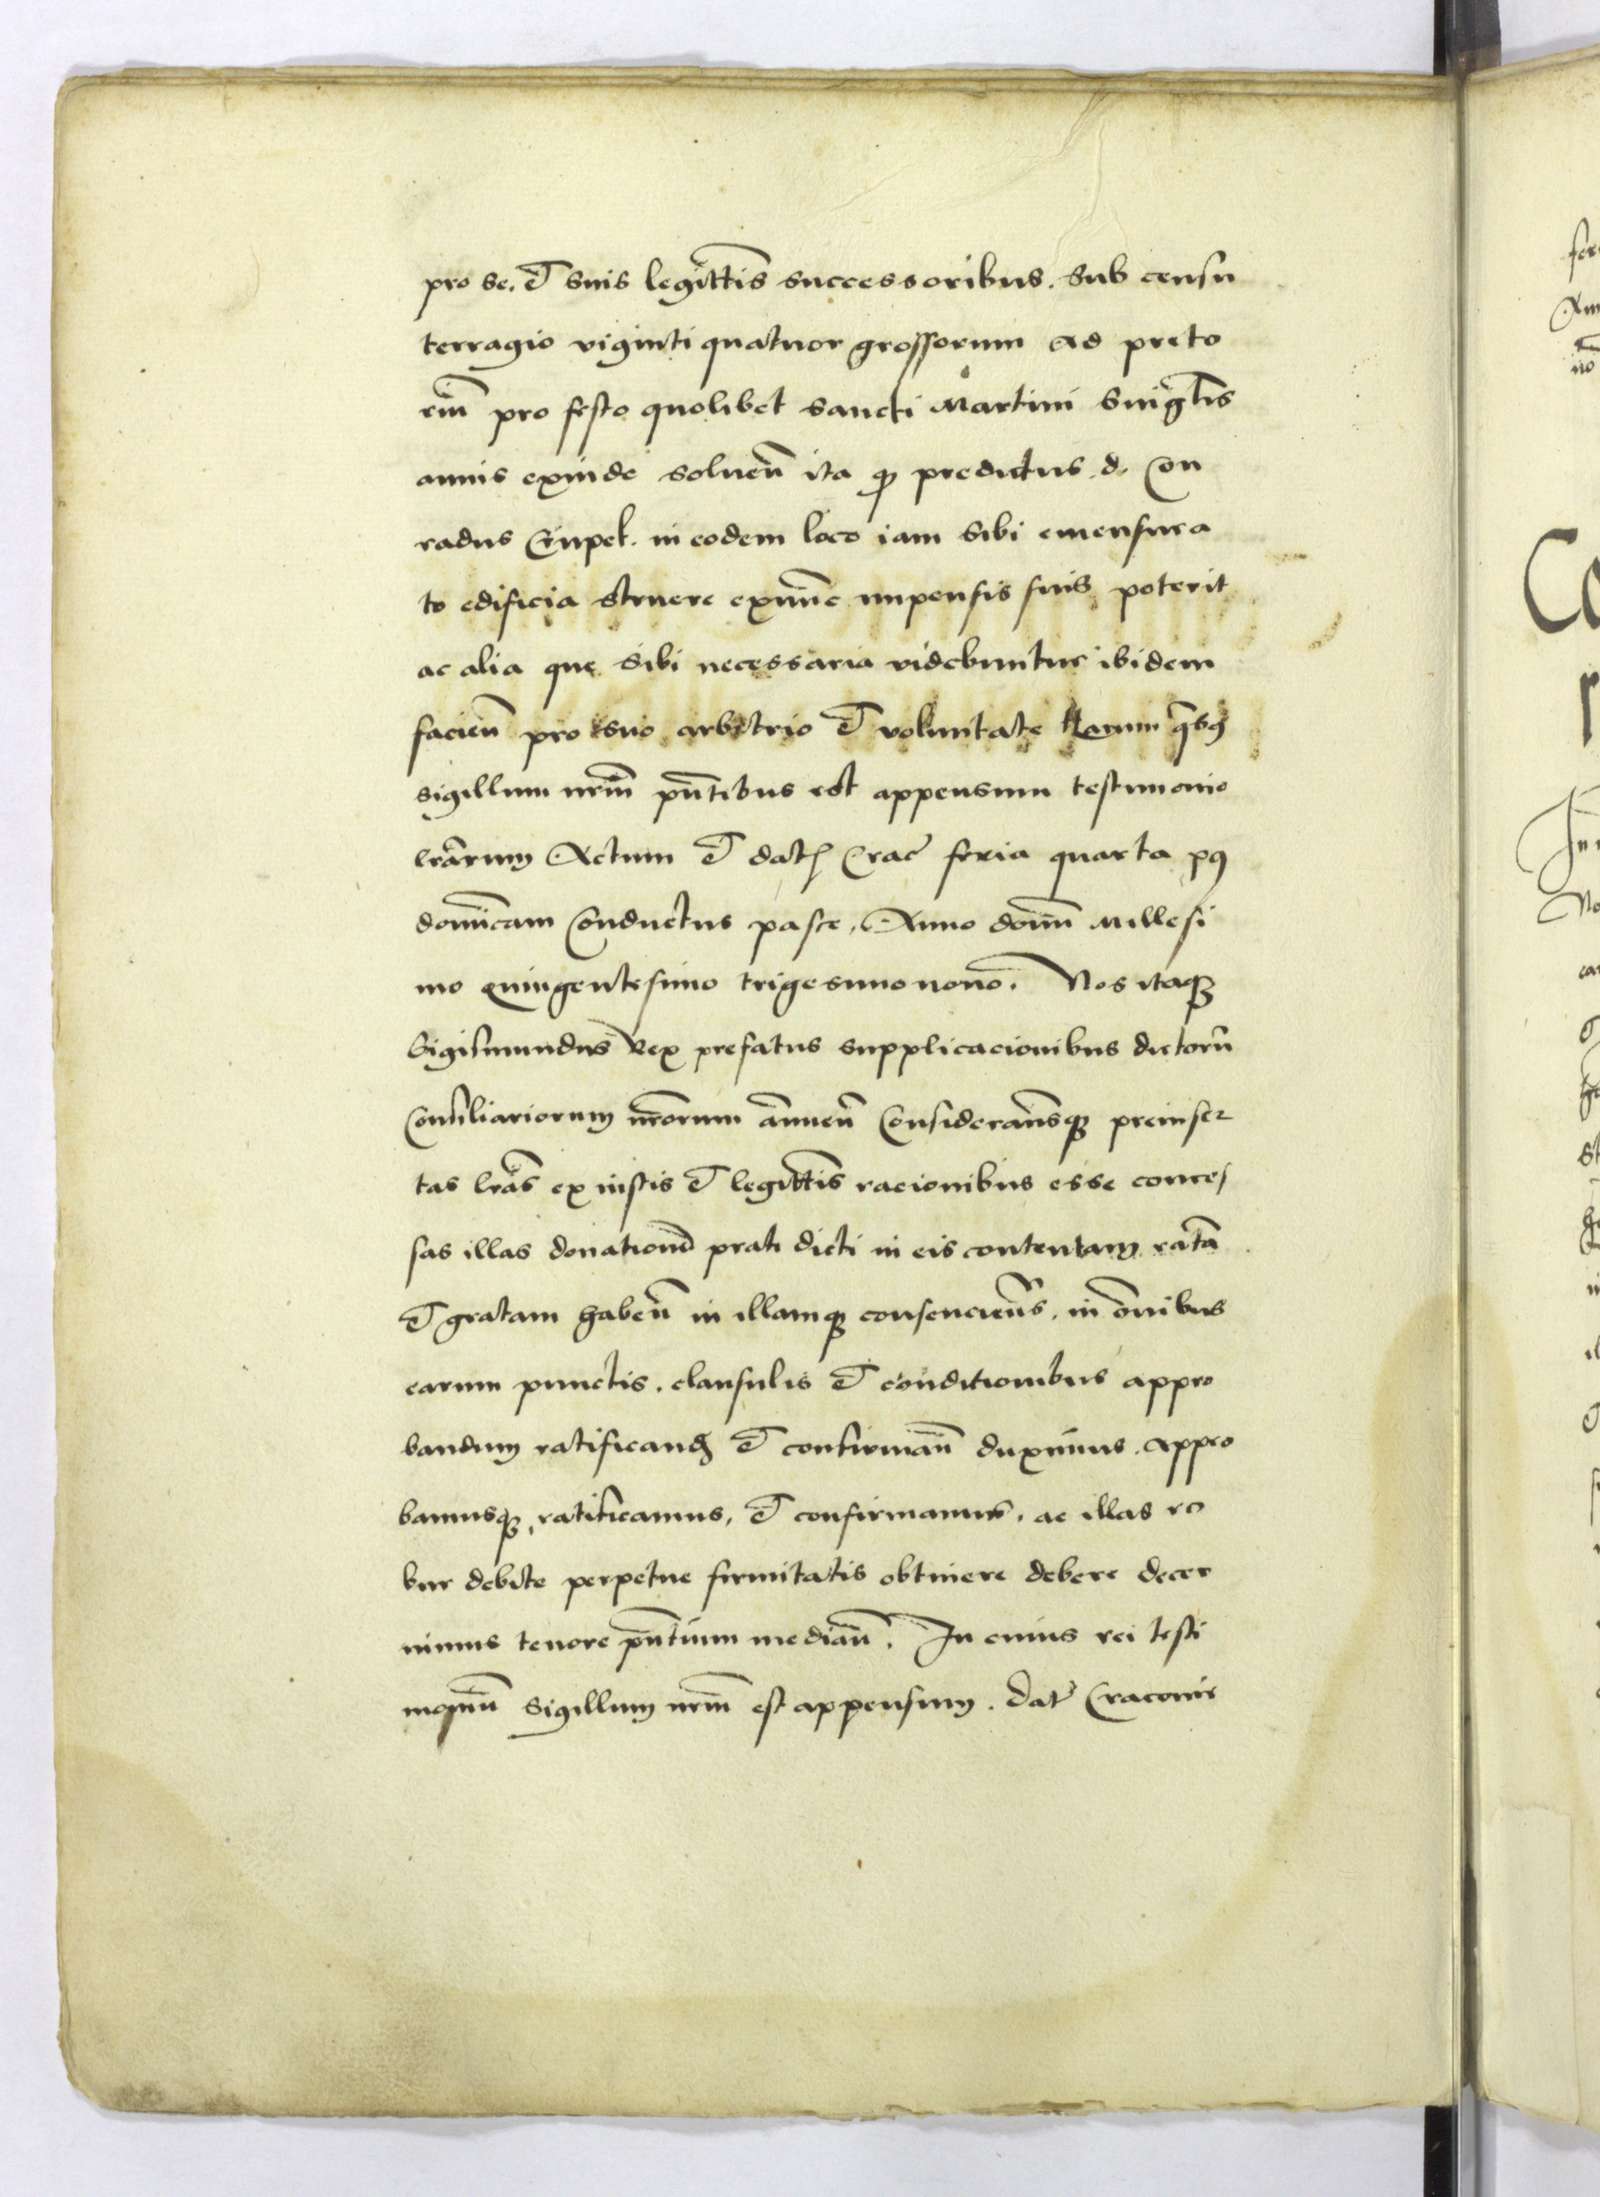 pro se. et suis legittis successoribus. Sub censu
terragio viginti quatuor grossorum ad preto
riū pro festo quolibet sancti Martini singlis
annis exinde soluen̄ ita qp predictus d. Con
radus Crupek. in eodem loco iam sibi emensura
to edificia struere extunc impensis suis poterit
ac alia que sibi necessaria videbuntur ibidem
facien̄ pro suo arbitrio et voluntate Harum qibs
sigillum nrm̄ pn̄tibus est appensum testimonio
lrārum Actum et dat Crac feria quarta pꝰ
domīcam Conductus pasce, Anno domī Millesi
mo quingentesimo trigesimo nono. Nos itaqꝫ
Sigismundus Rex prefatus supplicacionibus dictorū
Consiliariorum nr̄orum an̄uen̄ Considerantesqꝫ preinser
tas lrās ex iustis et legittīs racionibus esse conces
sas illas donationē prati dicti in eis contentam ratā
et gratam haben̄ in illamqꝫ consencien̄s. in om̄ibus
earum punctis. clausulis et conditionibus appro
bandum ratificand et confirman̄ duximus. appro
bamusqꝫ, ratificamus, et confirmamus. ac illas ro
bur debite perpetue firmitatis obtinere debere decer
nimus tenore pn̄tium median̄. In cuius rei testi
moniū Sigillum nrm̄ est appensum. Dat Cracouie